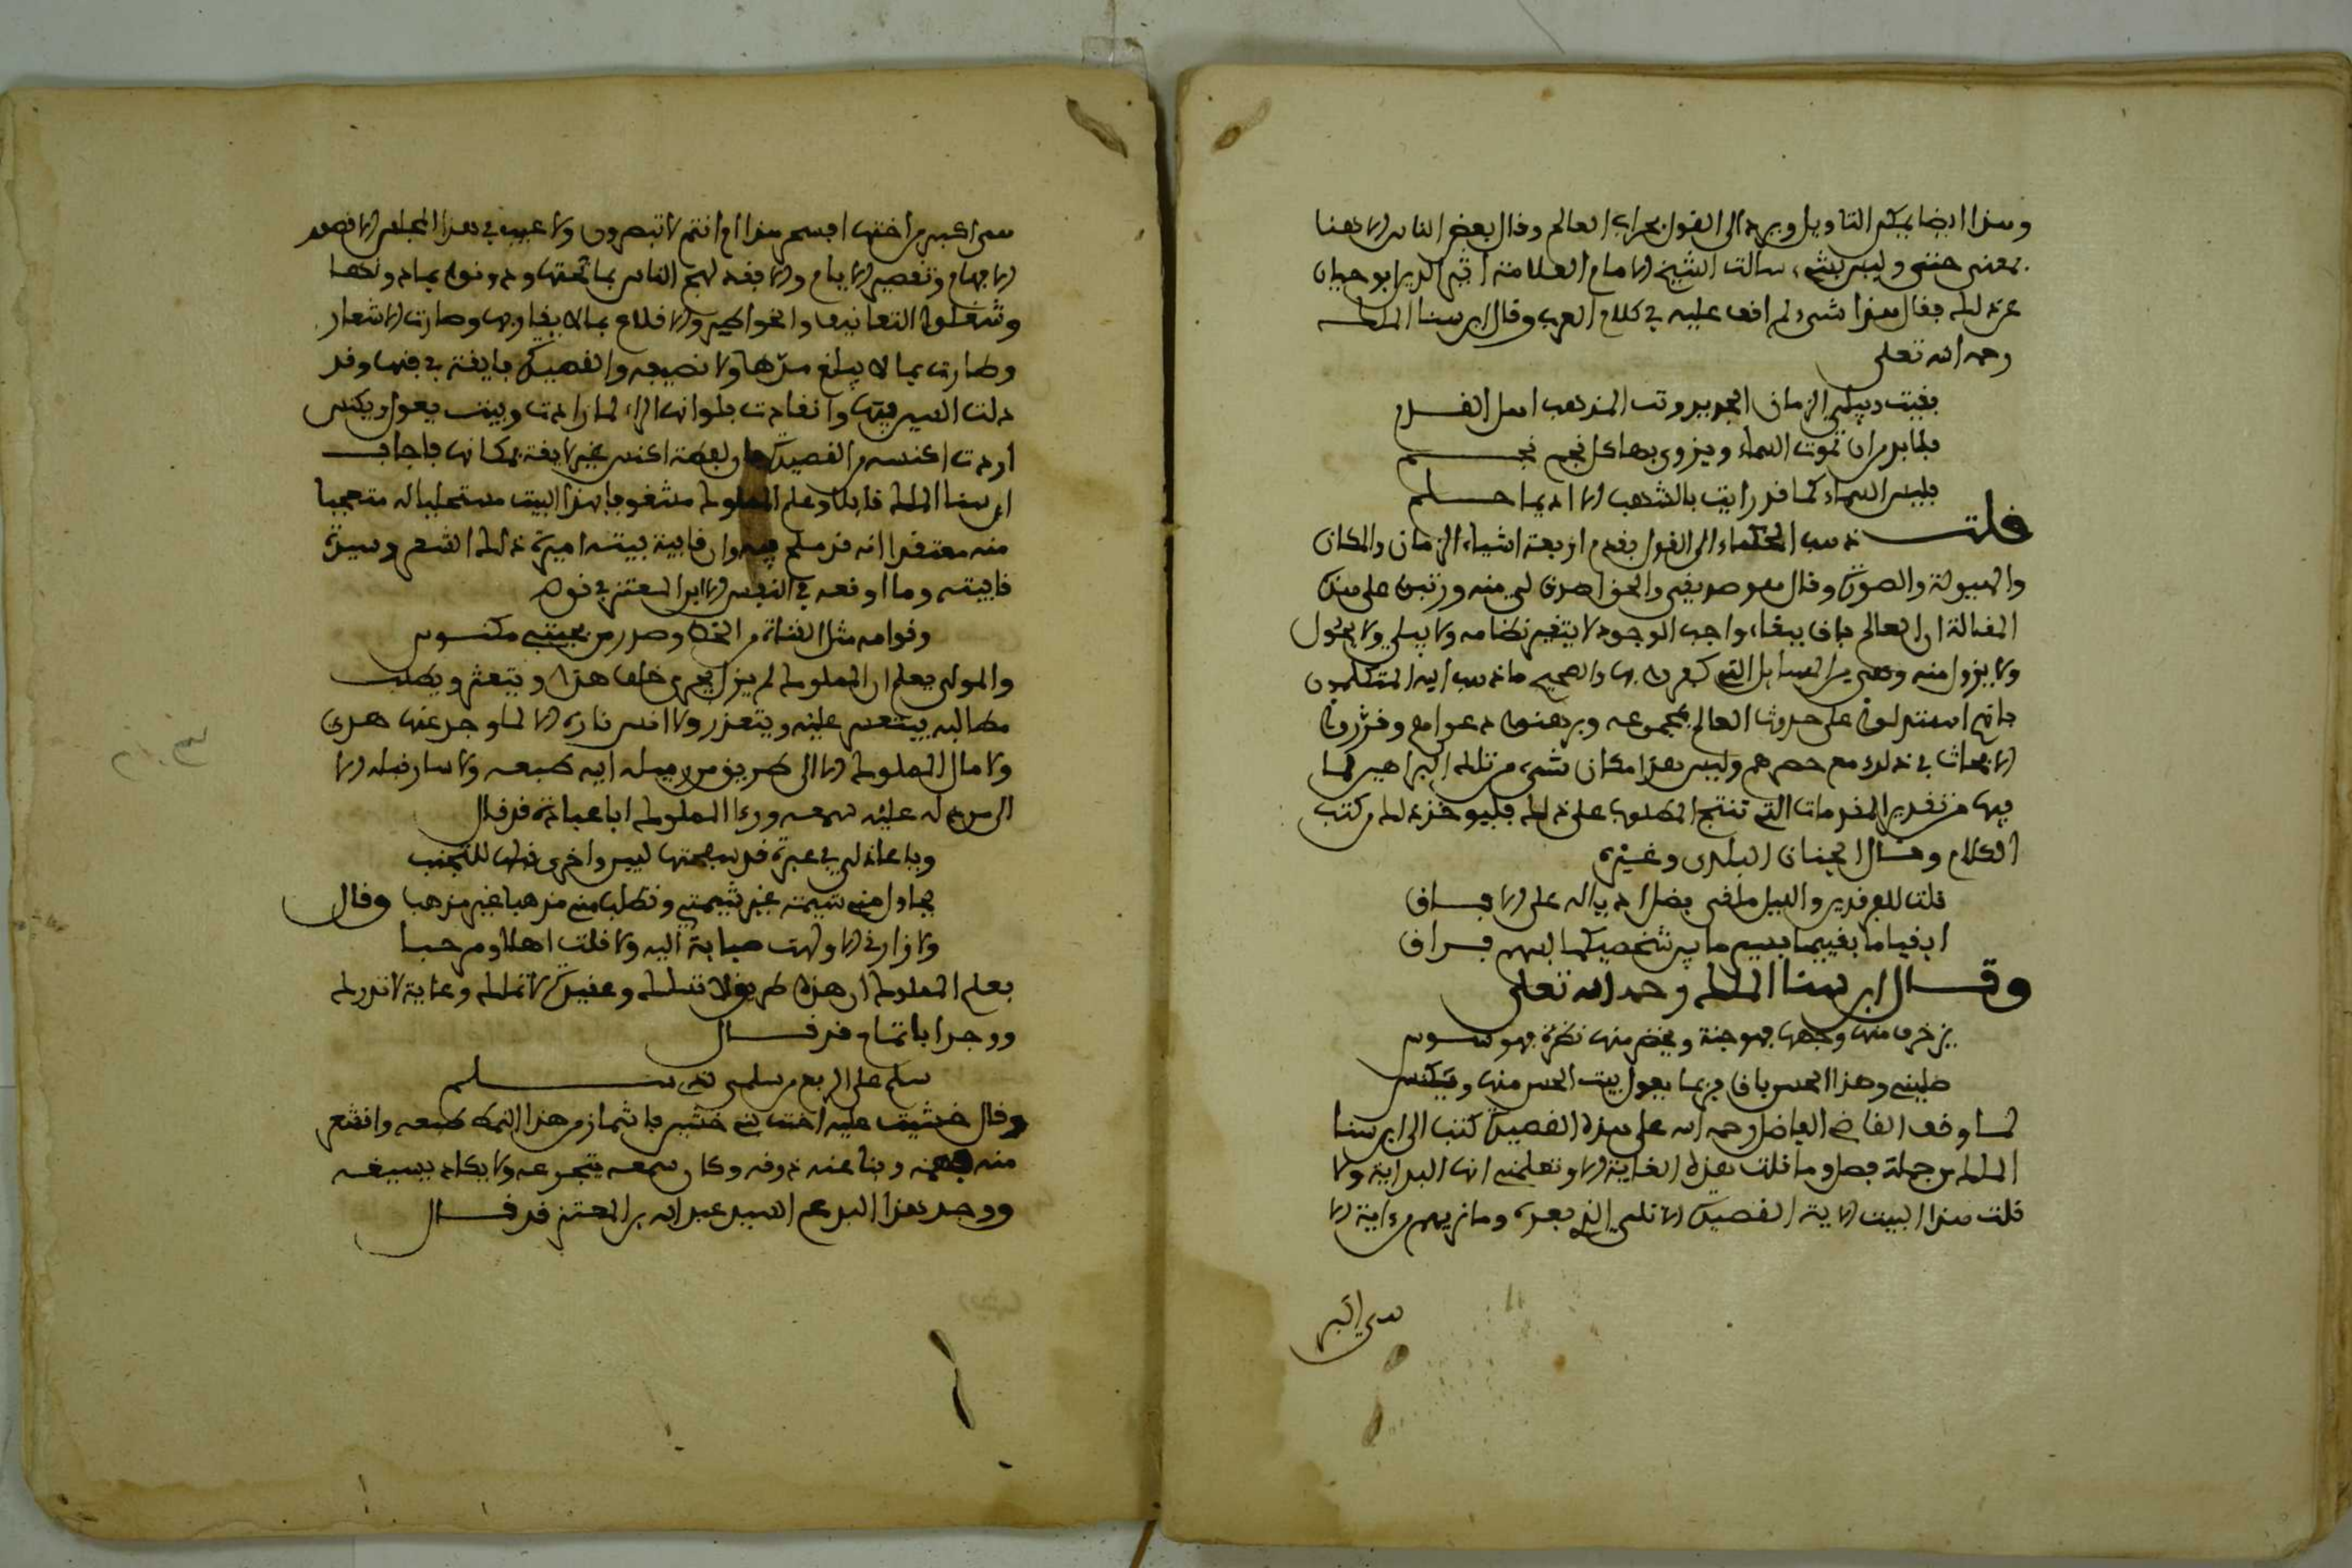 وهذا ايضا يمكن التاويل ويرجع الى القول بخراب العالم وقال بعض الناس الا هنا
بمعنى حتى وليس بشيء سالت الشيخ الامام العلامة اثير الدين ابو حيان
عن ذلك فقال هذا شيء لم اقف عليه في كلام العرب وقال ابن سنا الملك
رحمه الله تعلى
بقيت ويبلى الزمان الجديد وتب المذهب اهل القدم
فلا بد من ان تموت السماء ويزوى بها كل نجم نجم
فليس السماء كما قد رايت بالشهب الا اديما حلم
قلت ذهب الحكماء الى القول بقدم اربعة اشياء الزمان والمكان
والهيولة والصورة وقال معو صديقي والحق اصدق لي منه ورتبوا على هذه
المقالة ان العالم باق ببقاء واجب الوجود لا يتغير نظامه ولا يبلى ولا يحول
ولا يزول منه وهي من المسايل التي كفروا بها والصحيح ما ذهب اليه المتكلمون
فانهم استدلوا على حدوث العالم بمجموعه وبرهنوا دعواهم وقرروا
الابحاث في ذلك مع خصومهم وليس هذا مكان شيء من تلك البراهين لما
فيها من تقدير المقدمات التي تنتج المطلوب على ذلك فليوخذ ذلك من كتب
الكلام وقال الجنان البلدي وغيره
قلت للفرقدين والليل ملقى فضل اذياله على الافاق
ابقيا ما بقيتما فسيرمى بين شخصيكما بسهم فراق
وقال ابن سنا الملك رحمه الله تعلى
يزخرف منها وجهها فهو جنة ويخضر منها نظرة فهو سندس
صليني وهذا الحسن باق فربما يعزل بيت الحسن منها ويكنس
لما وقف القاضي الفاضل رحمه الله على هذه القصيدة كتب الى ابن سنا
الملك من جملة فصل وما قلت هذه الغاية الا وتعلمني انها البداية ولا
قلت هذا البيت اية القصيدة الا تلى الذي بعده وما نريهم من اية الا
هي اكبر
هي اكبر من اختها افسحر هذا ام انتم لا تبصرون ولا عيب في هذا المجلس الا قصور
الافهام وتقصير الايام والا فقد لهج الناس بما تحتها ودونوا بما دونها
وشغلوا التصانيف والخواطير والاقلام بما لا يقاربها وطارت الاشعار
وطارت بما لا يبلغ مدها ولا نصيفه والقصيدة فايقة في فنها وقد
ذلت السين فيها وانقادت فلو انها الراء لما رادت وبيت يعزل ويكنس
اردت اكنسه من القصيدة فان لفظة اكنس غير لايقة بمكانها فاجاب
ابن سنا الملك قايلا وعلم المملوك مشغوفا بهذا البيت مستحليا له متعجبا
منه معتقدا انه قد ملح فيه وان قافية بيته اميرة ذلك الشعر وسيدة
قافيته وما اوقعه في الكنس الا ابن المعتز في قوله
وقوامه مثل القناة من الخط وخدي من لحيتي مكنوس
والمولى يعلم ان المملوك لم يزل يجري خلف هذا ويتعثر ويطلب
مطالبه فيتعسر عليه ويتعذر ولا انس ناره الا لما وجد عنها هدى
ولا مال المملوك الا الى طريق من ميله اليه طبعه ولا سار قبله الا
الى من دله عليه سمعه وراى المملوك ابا عبادة قد قال
ويا عاذلي في عبرة قد سفحتها لبين واخرى قبلها للتجنب
تحاول مني شيمة غير شيمتي وتطلب مني مذهبا غير مذهب وقال
ولا زارني الا ولهت صبابة اليه ولا قلت اهلا ومرحبا
فعلم المملوك ان هذه طريق لا تسلك وعقيدة لا تملك وغاية لا تدرك
ووجد ابا تمام قد قال
سلم على الربع من سلمى بذي سلم
وقال خشيت عليه اخت بني خشين فاشماز من هذا النمط طبعه واقشعر
منه فهمه ونبا عنه ذوقه وكان سمعه يتجرعه ولا يكاد يسيغه
ووجد هذا البدع السيد عبد الله بن المعتز قد قال